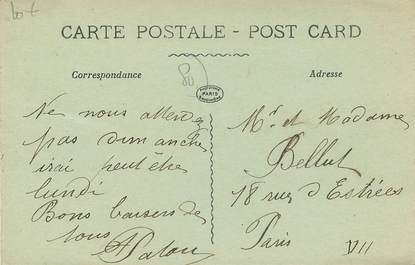 CARTE POSTALE - POST CARD
Correspondance
Adresse
PARIS
Ne nous attendez
pas dimanche
irai peut être
lundi
Bons baisers de
tous
Mr et Madame
Bellut
18 rue d'Estrées
Paris VII